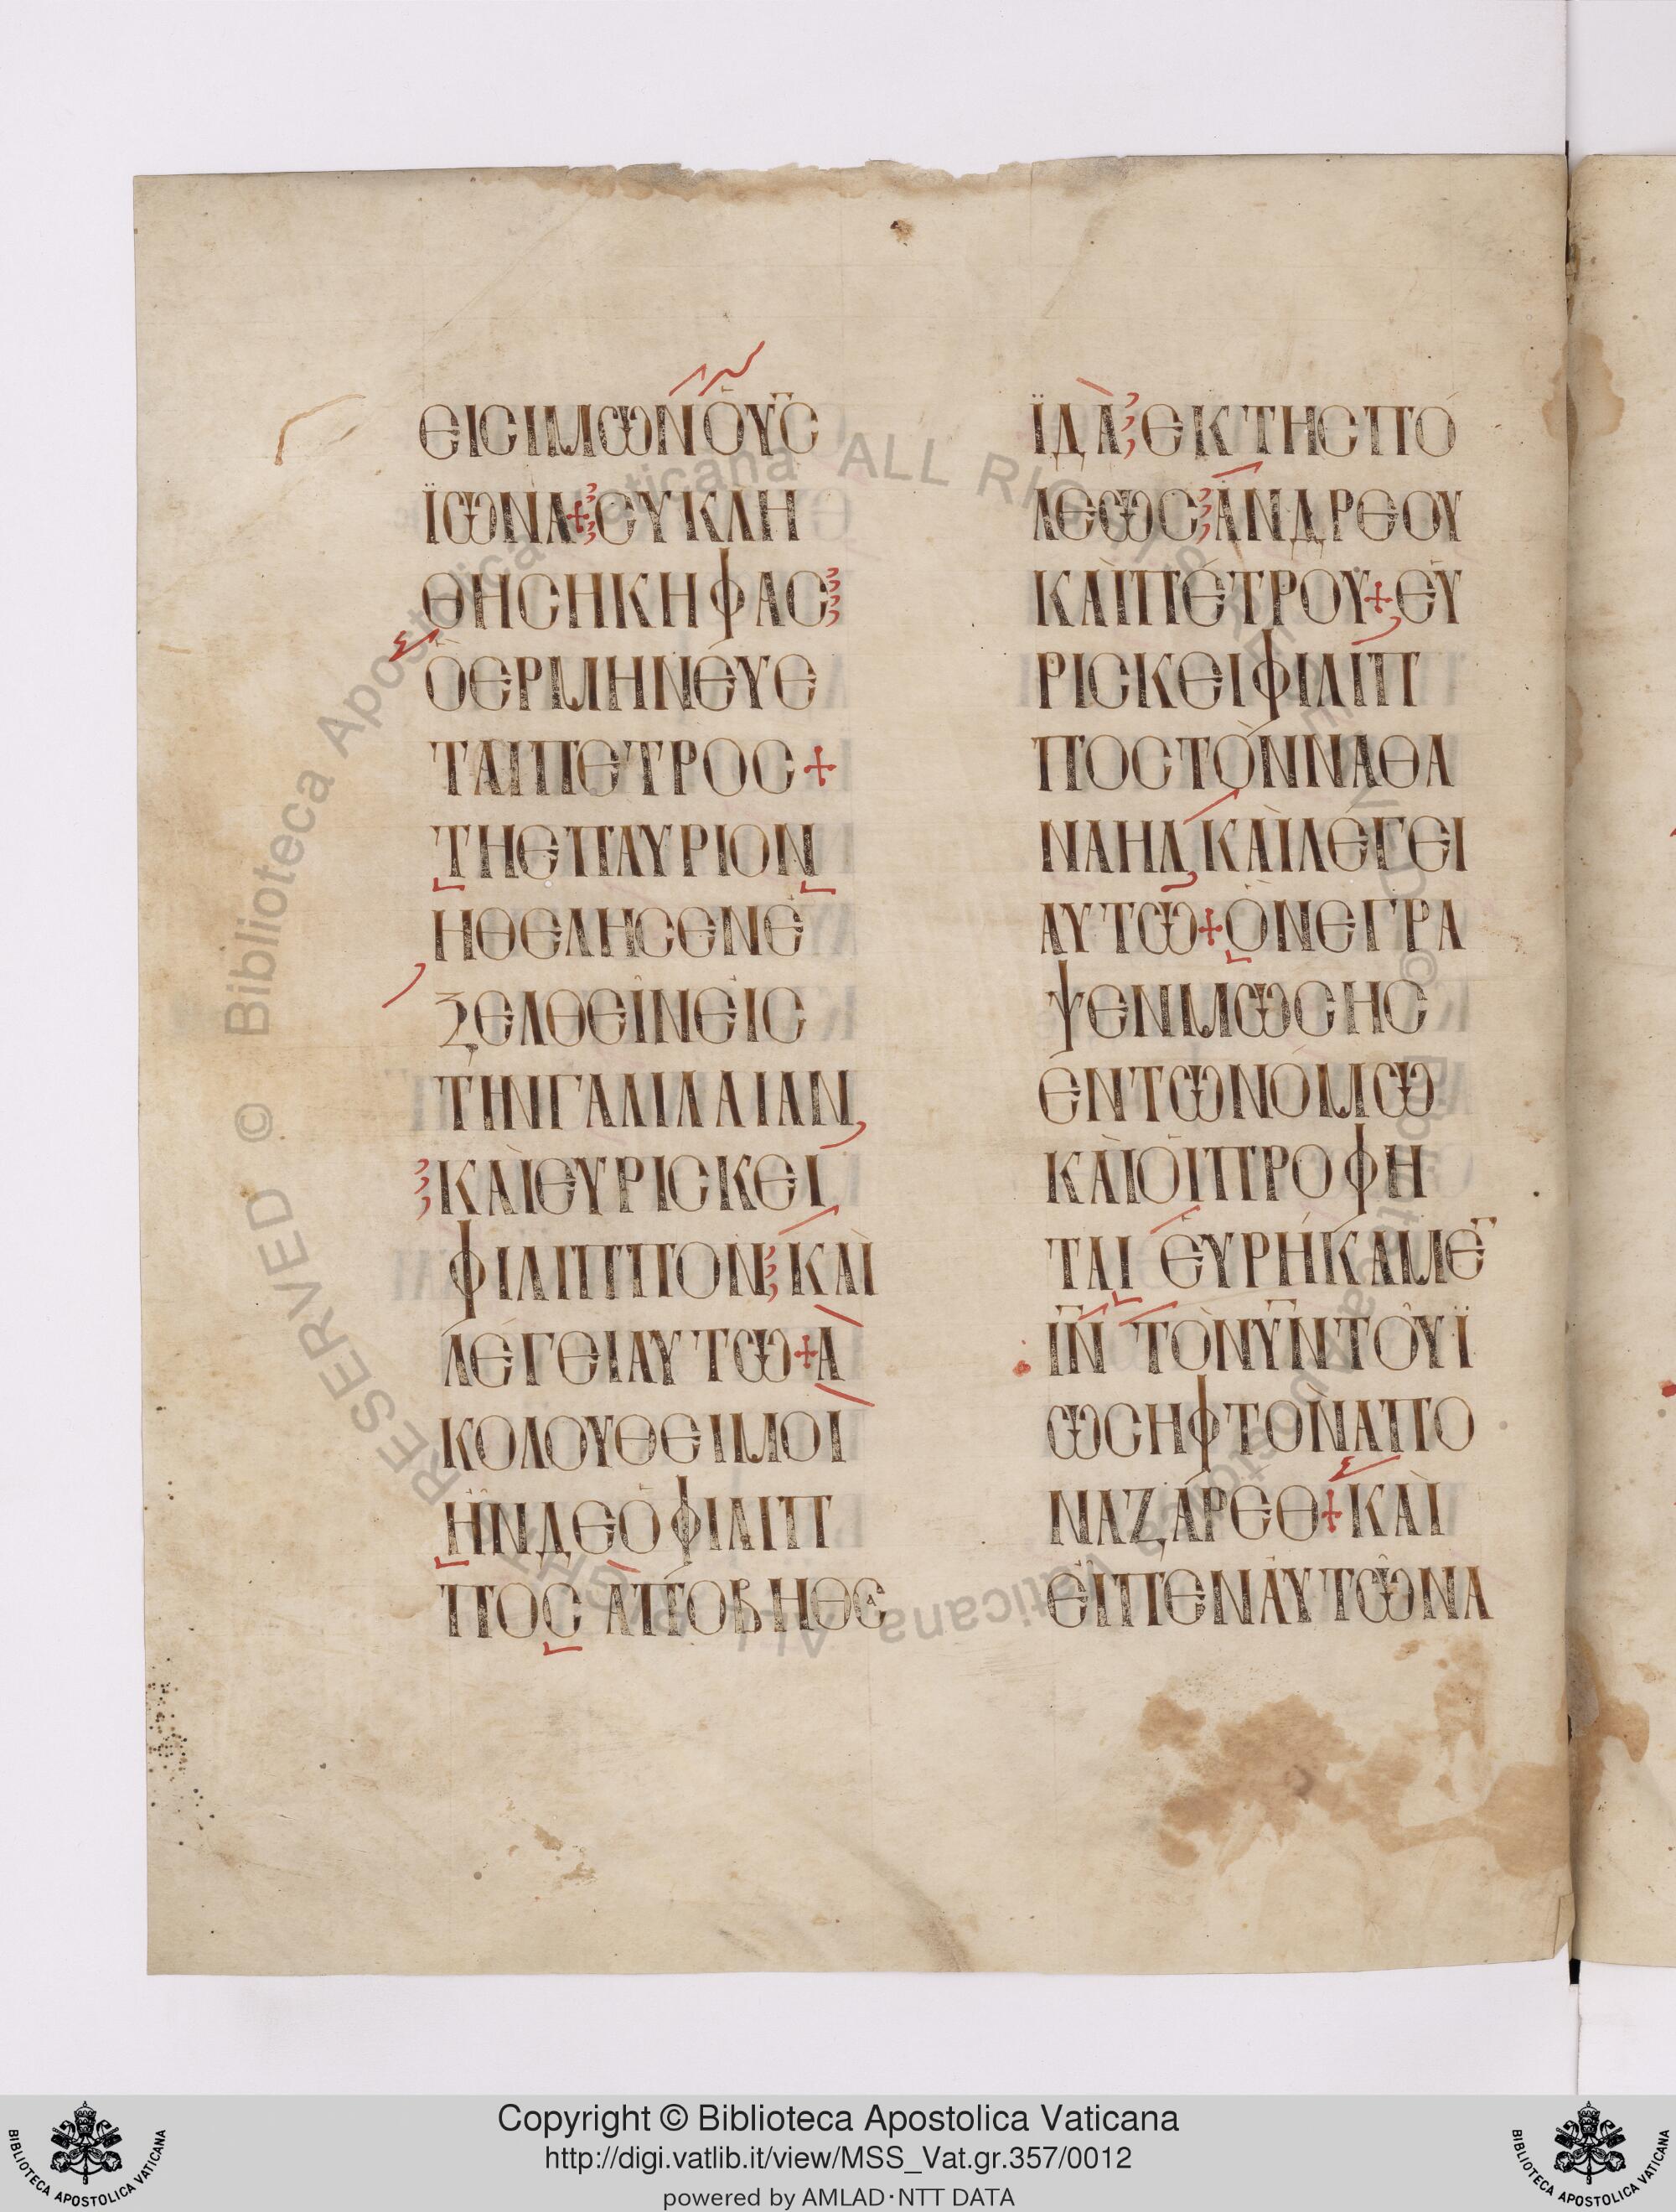 ΕΙϹΙΜΩΝὉΥ̅Ϲ̅
ΪΩΝΑ+ϹΥΚΛΗ
ΘΗϹΗΚΗΦΑϹ
ὉΕΡΜΗΝΕΎΕ
ΤΑΙΠΕΤΡΟϹ+
ΤΗΕΠΑΥΡΙΟΝ
ΗΘΕΛΗϹΕΝΕ
ΞΕΛΘΕΙ͂ΝΕΙϹ
ΤῊΝΓΑΛΙΛΑΙΑΝ
ΚΑῚΕΥΡΙϹΚΕΙ
ΦΙΛΙΠΠΟΝ ΚΑῚ
ΛΈΓΕΙΑΥΤΩ+Α
ΚΟΛΟΥΘΕΙΜΟΙ
ἮΝΔΕὉΦΙΛΙΠ
ΠΟϹ ΑΠῸΒΗΘϹ
ΪΔᾺ ΕΚΤΗϹΠΌ
ΛΕΩϹ ἈΝΔΡΕΟΥ
ΚΑῚΠΈΤΡΟΥ+ΕΥ
ΡΙϹΚΕΙΦΙΛΙΠ
ΠΟϹΤῸΝΝΑΘΑ
ΝΑΗΛ ΚΑῚΛΕΓΕΙ
ΑΥΤΩ+ὋΝΕΓΡΑ
ΨΕΝΜΩϹΗϹ
ΕΝΤΩΝΌΜΩ
ΚΑῚΟἹΠΡΟΦΗ
ΤΑΙ ΕΥΡΉΚΑΜΕ̅
Ι̅Ν̅ ΤῸΝΥ̅Ν̅ΤΟΥΪ
ΩϹΗΦΤῸΝΑΠΟ
ΝΑΖΑΡΕΘ+ΚΑῚ
ΕΙΠΕΝΑΥΤΩΝΑ
Copyright © Biblioteca Apostolica Vaticana
http://digi.vatlib.it/view/MSS_Vat.gr.357/0012
powered by AMLAD·NTT DATA
BIBLIOTECA APOSTOLICA VATICANA
BIBLIOTECA APOSTOLICA VATICANA